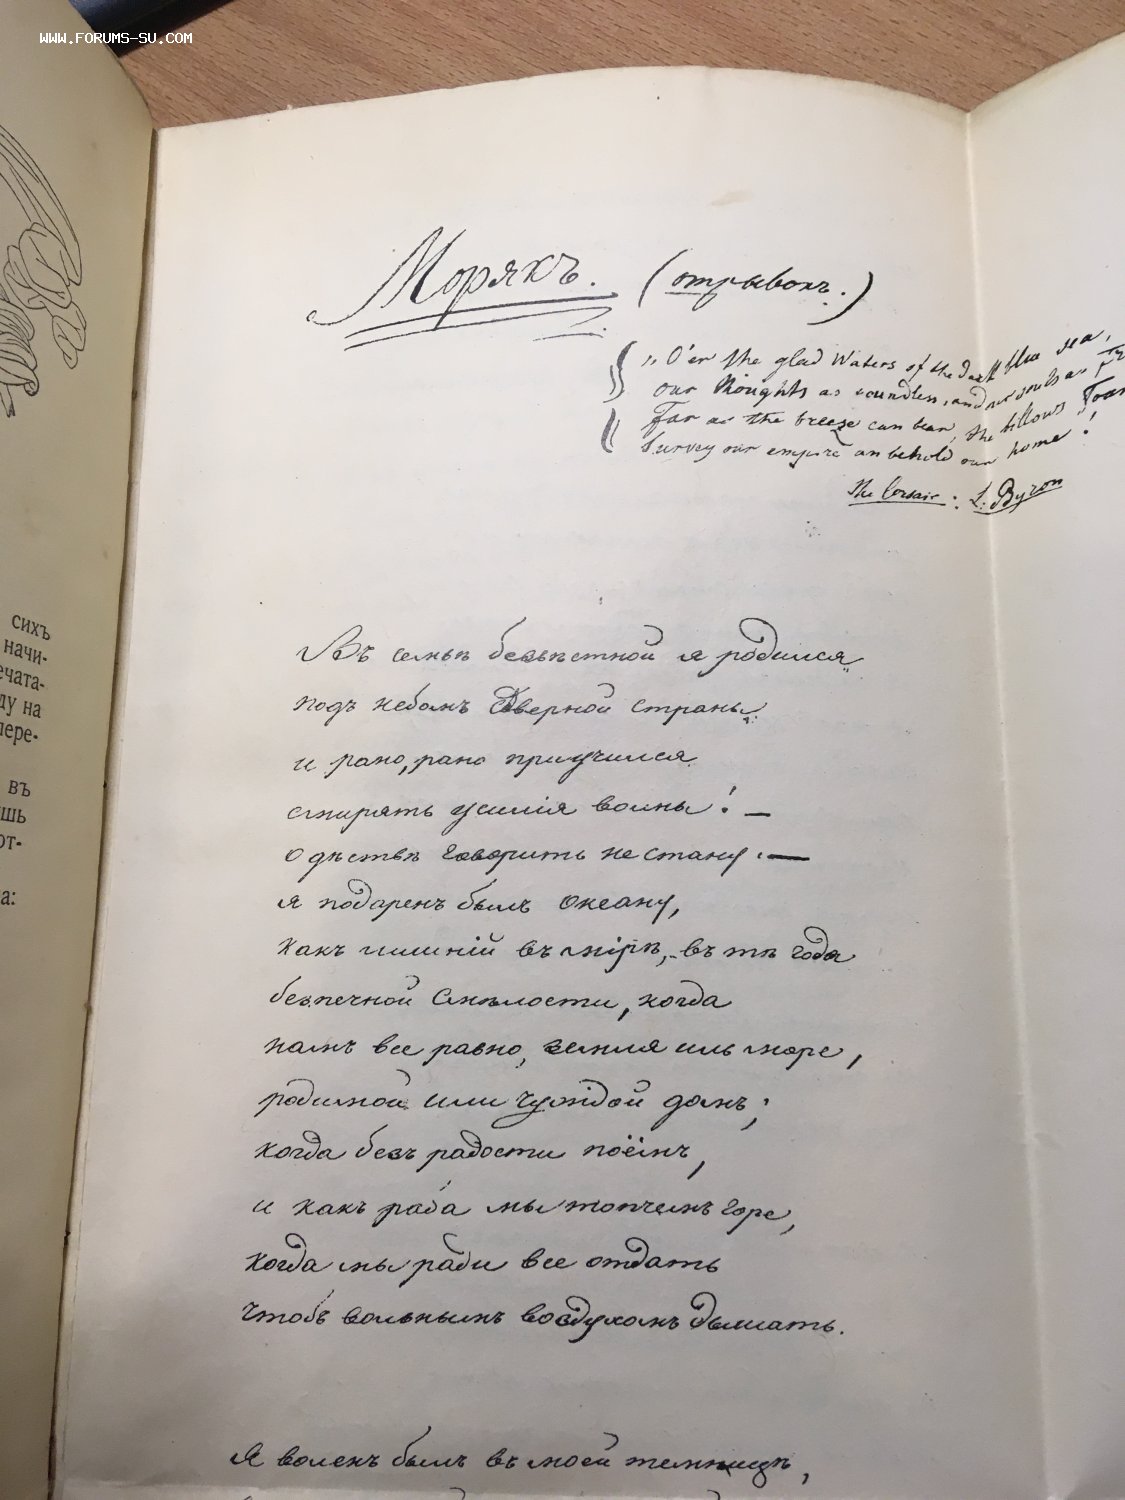 www.forums-su.com
сихъ
начи-
ечата-
ду на
пере-
въ
ишь
от-
а:
Морякъ. (отрывокъ.)
„O'er the glad Waters of the dark blue sea,
our thoughts as boundless, and our souls as
Far as the breeze can bear, the billows foam
Survey our empire an behold our home!
The Corsair. L. Byron
Въ семьѣ безвѣстной я родился
подъ небомъ сѣверной страны
и рано, рано пріучился
смирять усилія волны! —
О дѣтствѣ говорить не стану. —
я подаренъ былъ океану,
какъ лишній въ мірѣ, въ тѣ года
безпечной смѣлости, когда
намъ все равно, земля иль море,
родимой или чуждой домъ;
когда безъ радости поёмъ,
и какъ раба мы топчемъ горе,
когда мы ради все отдать
чтобъ вольнымъ воздухомъ дышать.
Я воленъ былъ въ моей темницѣ,